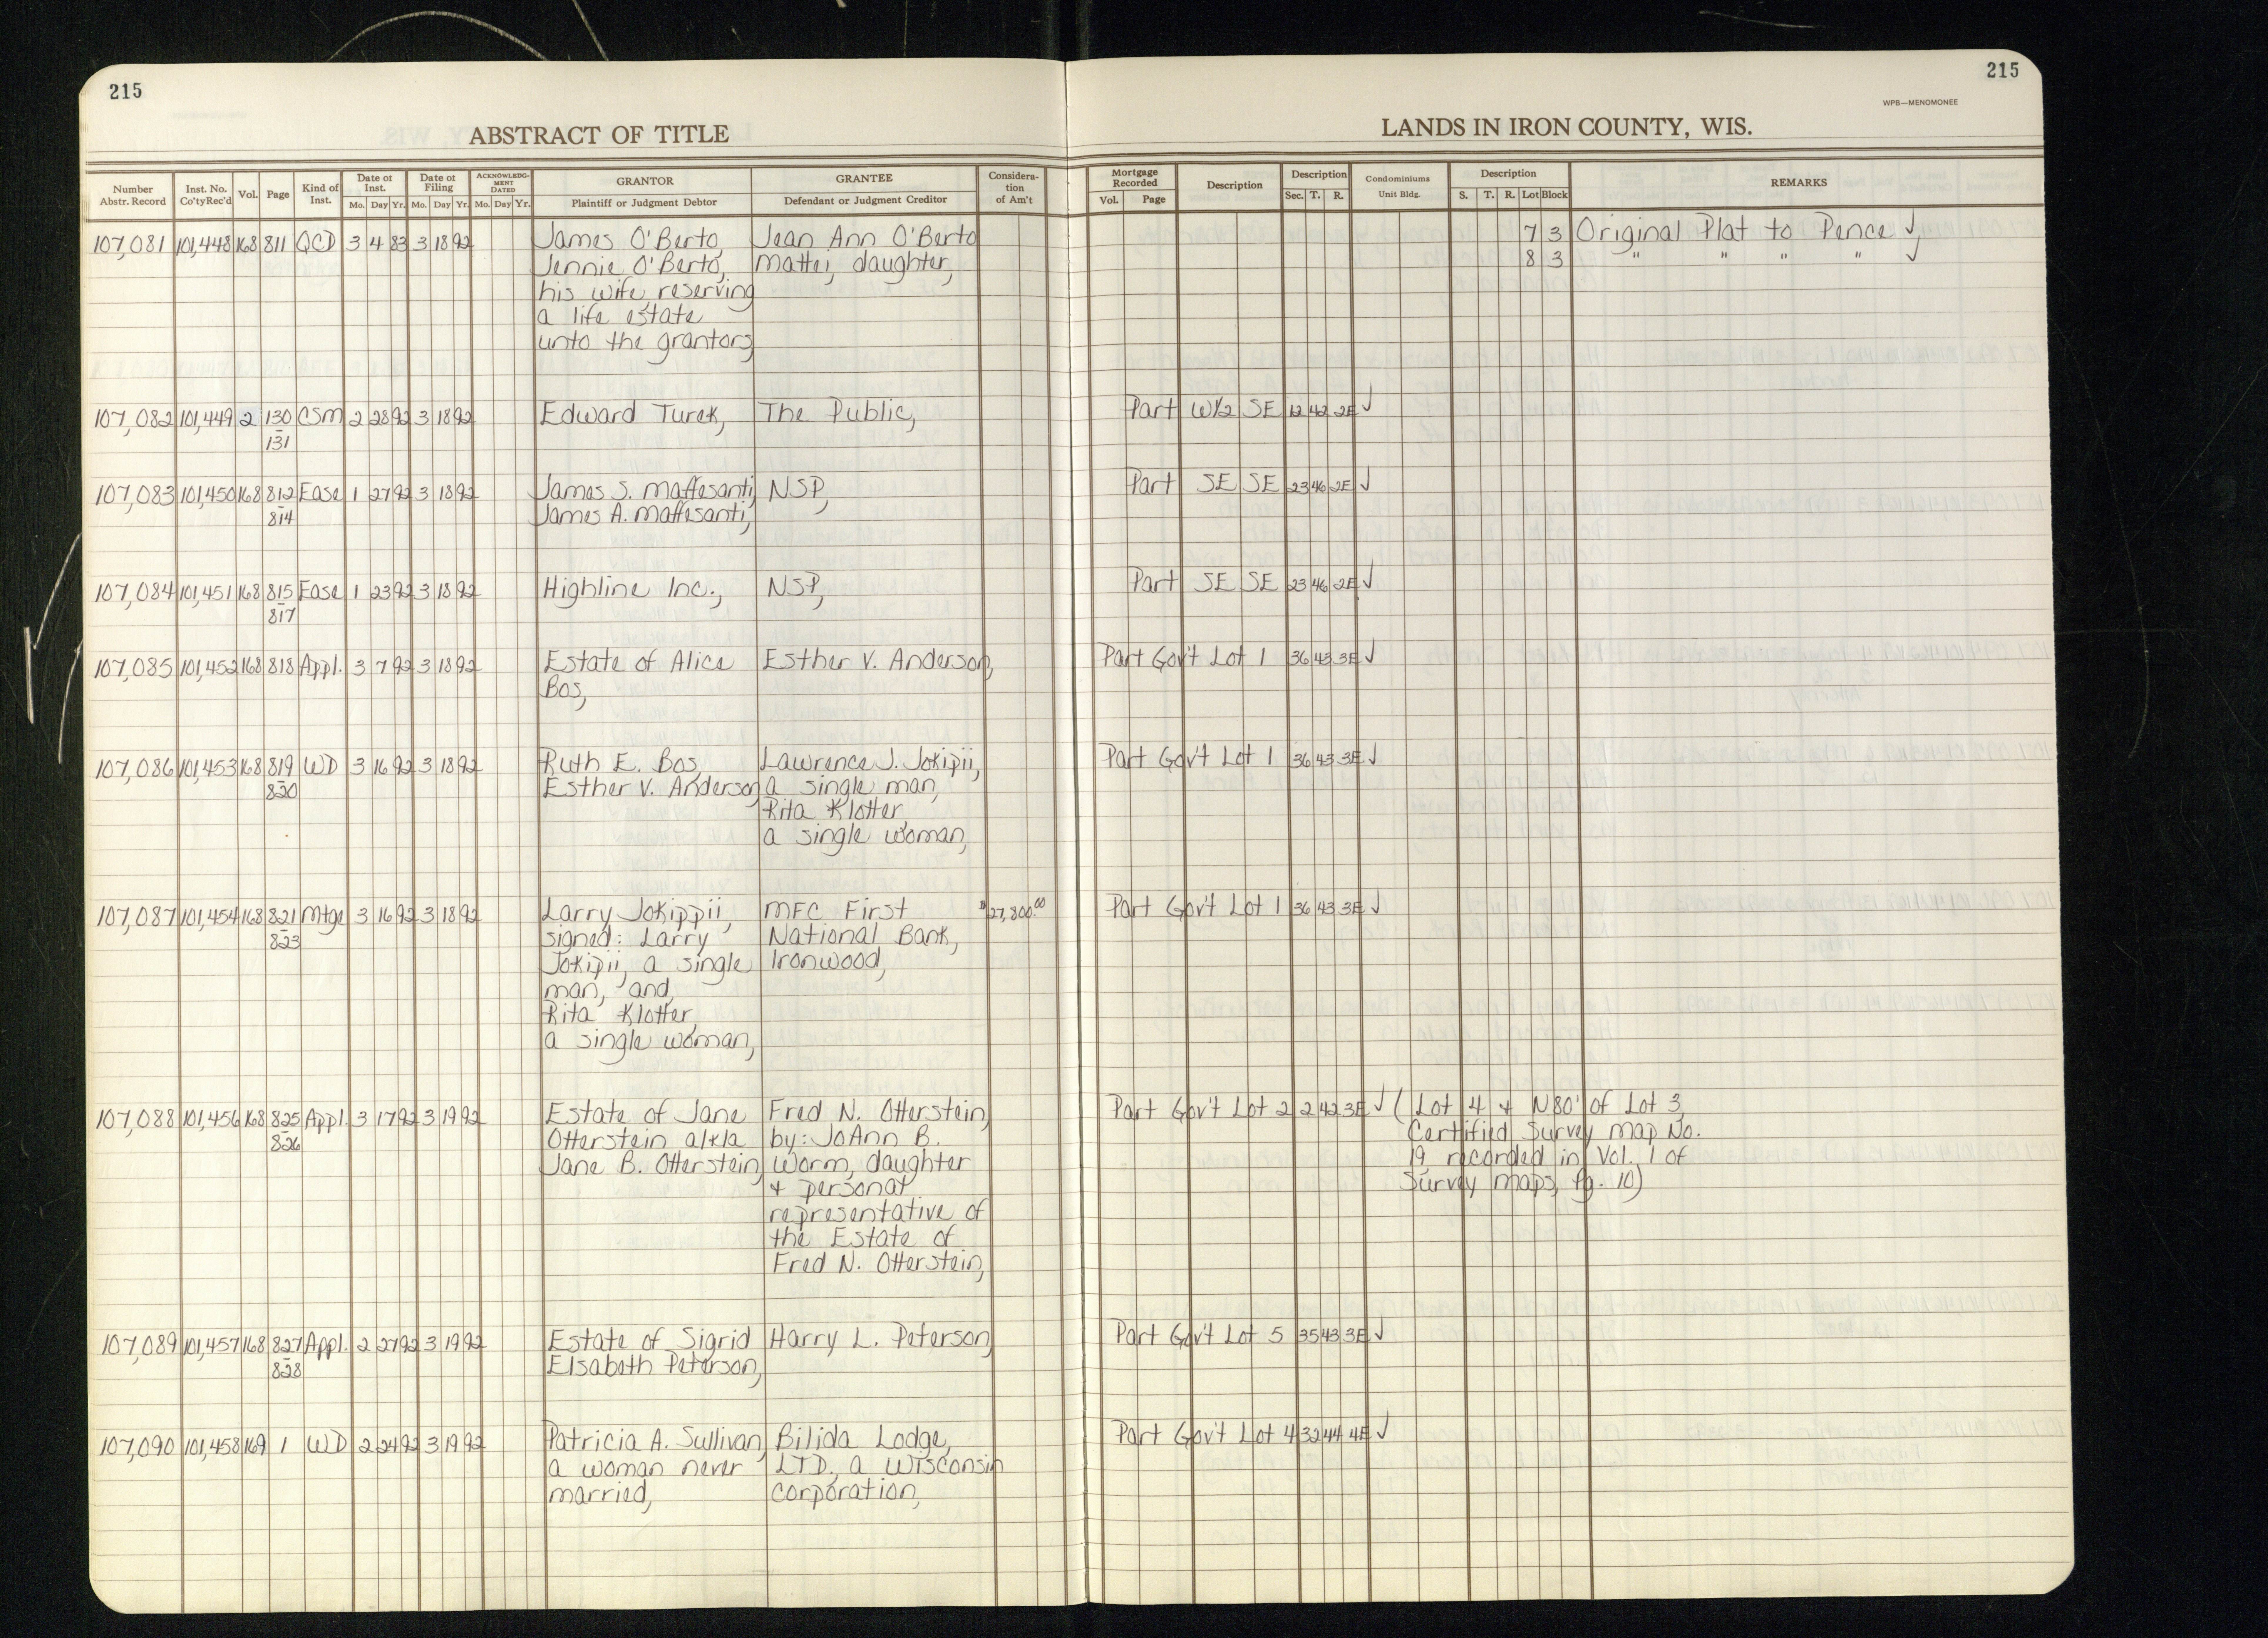 215
215
WPB—MENOMONEE
ABSTRACT OF TITLE
LANDS IN IRON COUNTY, WIS.
Number Abstr. Record | Inst. No. Co'tyRec'd | Vol. | Page | Kind of Inst. | Date of Inst. Mo. Day Yr. | Date of Filing Mo. Day Yr. | ACKNOWLEDGMENT DATED Mo. Day Yr. | GRANTOR Plaintiff or Judgment Debtor | GRANTEE Defendant or Judgment Creditor | Consideration of Am't | Mortgage Recorded Vol. Page | Description | Description Sec. T. R. | Condominiums Unit Bldg. | Description S. T. R. Lot Block | REMARKS
107,081 101,448 168 811 QCD 3 4 83 3 18 92 James O'Berto, Jean Ann O'Berto 7 3 Original Plat to Pence ✓,
Jennie O'Berto, Mattei, daughter, 8 3 " " " " ✓
his wife, reserving
a life estate
unto the grantors,
107,082 101,449 2 130 CSM 2 28 92 3 18 92 Edward Turek, The Public, Part W½ SE 12 42 2E ✓
-
131
107,083 101,450 168 812 Ease 1 27 92 3 18 92 James S. Maffesanti, NSP, Part SE SE 23 46 2E ✓
-
814 James A. Maffesanti,
107,084 101,451 168 815 Ease 1 23 92 3 18 92 Highline Inc., NSP, Part SE SE 23 46 2E ✓
-
817
107,085 101,452 168 818 Appl. 3 7 92 3 18 92 Estate of Alice Esther V. Anderson, Part Gov't Lot 1 36 43 3E ✓
Bos,
107,086 101,453 168 819 WD 3 16 92 3 18 92 Ruth E. Bos, Lawrence J. Jokipii, Part Gov't Lot 1 36 43 3E ✓
-
820 Esther V. Anderson, a single man,
Rita Klotter,
a single woman,
107,087 101,454 168 821 Mtge 3 16 92 3 18 92 Larry Jokippii, MFC First $27,800.00 Part Gov't Lot 1 36 43 3E ✓
-
823 signed: Larry National Bank,
Jokipii, a single Ironwood,
man, and,
Rita Klotter,
a single woman,
107,088 101,456 168 825 Appl. 3 17 92 3 19 92 Estate of Jane Fred N. Otterstein, Part Gov't Lot 2 2 42 3E ✓ (Lot 4 & N80' of Lot 3,
-
826 Otterstein a/k/a by: JoAnn B. Certified Survey Map No.
Jane B. Otterstein, Worm, daughter 19 recorded in Vol. 1 of
& personal Survey Maps, Pg. 10)
representative of
the Estate of
Fred N. Otterstein,
107,089 101,457 168 827 Appl. 2 27 92 3 19 92 Estate of Sigrid Harry L. Peterson, Part Gov't Lot 5 35 43 3E ✓
-
828 Elsabeth Peterson,
107,090 101,458 169 1 WD 2 24 92 3 19 92 Patricia A. Sullivan, Bilida Lodge, Part Gov't Lot 4 32 44 4E ✓
a woman never LTD., a Wisconsin
married, corporation,